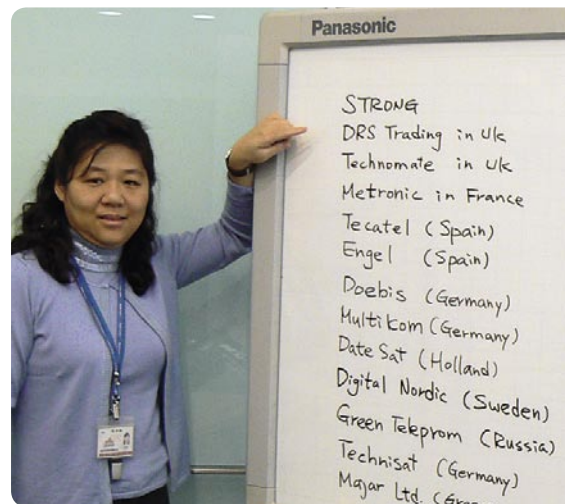 Panasonic
STRONG
DRS Trading in UK
Technomate in UK
Metronic in France
Tecatel (Spain)
Engel (Spain)
Doebis (Germany)
Multikom (Germany)
Date Sat (Holland)
Digital Nordic (Sweden)
Green Teleprom (Russia)
Technisat (Germany)
Majar Ltd.